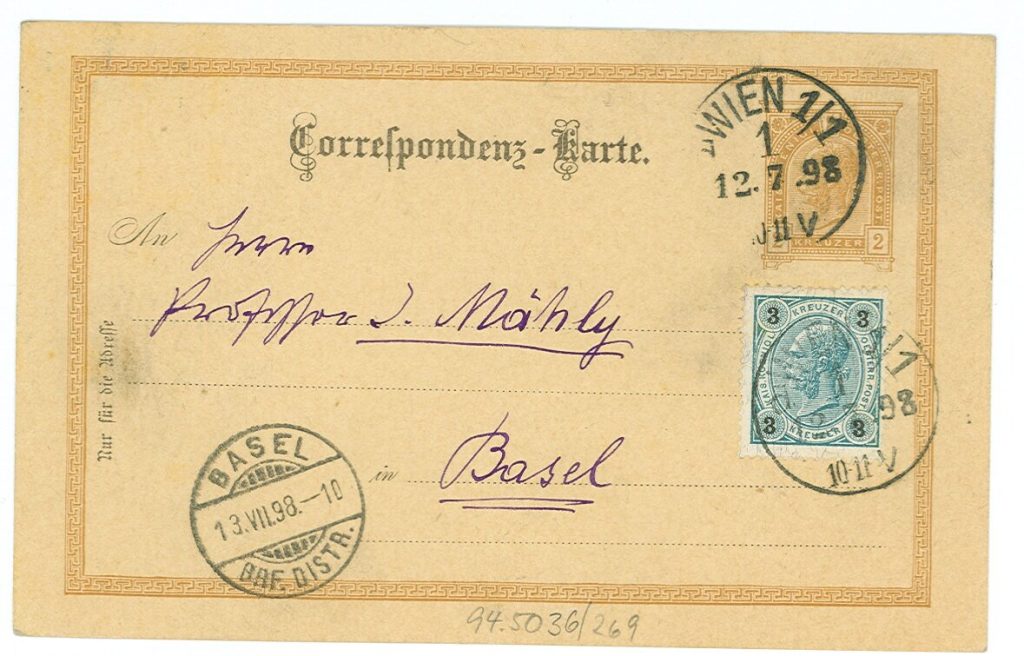 Correspondenz-Karte.
WIEN 1/1
1
12.7.98
10-11 V
2 KREUZER 2
An Herrn
Professor J. Mähly
3 KREUZER 3
KAIS. KOENIGL. OESTERR. POST
3 KREUZER 3
1/1
98
10-11 V
Nur für die Adresse
in Basel
BASEL
13.VII.98.-10
BRF. DISTR.
94.5036/269